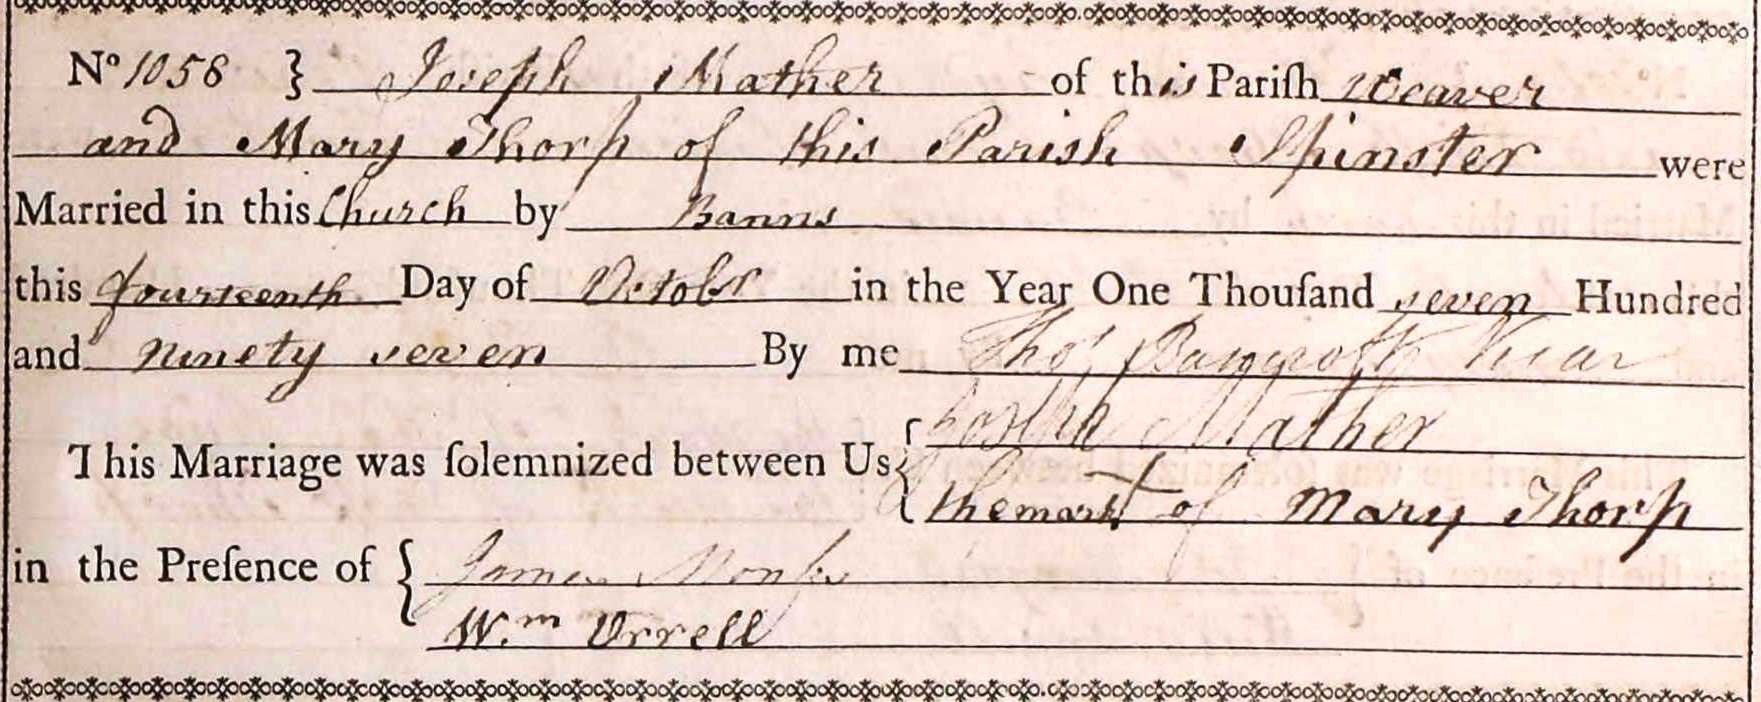 No 1058 } Joseph Mather of this Pariſh Weaver
and Mary Thorp of this Parish Spinster were
Married in this Church by Banns
this fourteenth Day of Octobr in the Year One Thouſand seven Hundred
and ninety seven By me Thos Bancroft Vicar
This Marriage was ſolemnized between Us { Mather
the mark of Mary Thorp
in the Preſence of { James
Wm Orrell